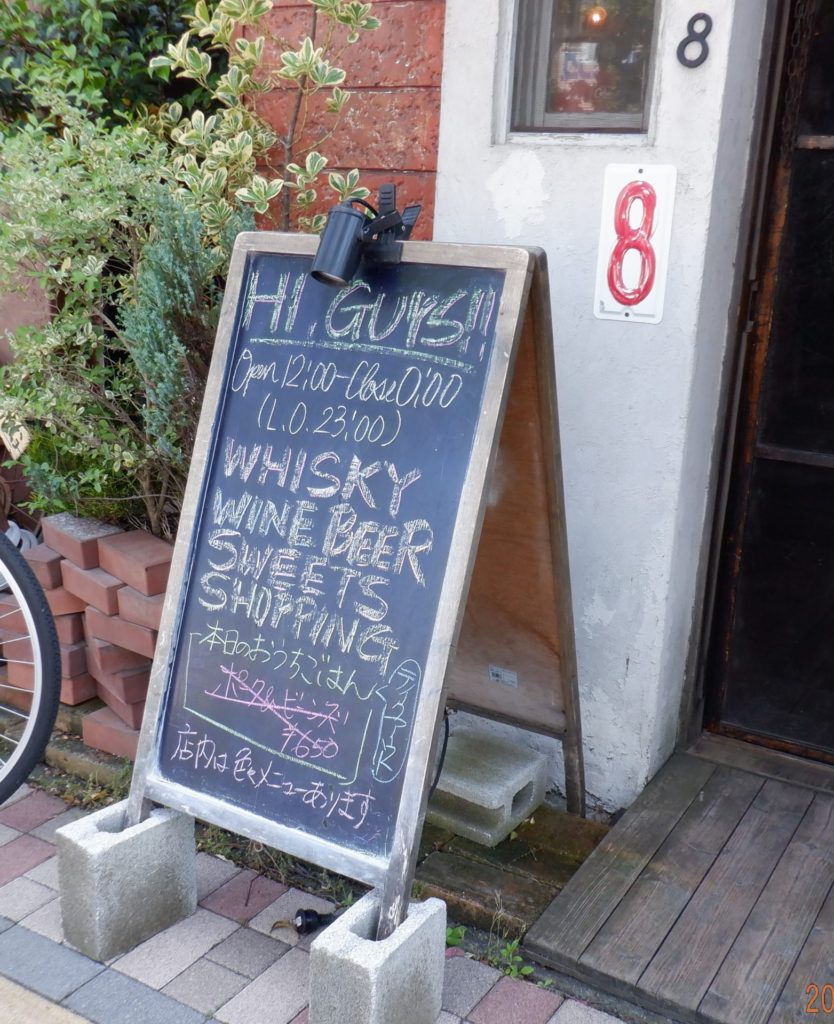 8
8
HI, GUYS!!
Open 12:00-Close 0:00
(L.O. 23:00)
WHISKY
WINE BEER
SWEETS
SHOPPING
本日のおうちごはん
テイクアウトOK
ポーク&ビーンズ
¥650
店内は色々メニューあります
20